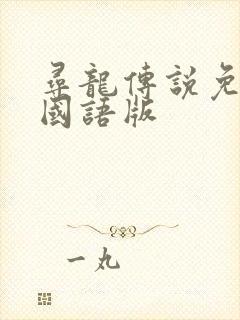 尋龍傳説免
國語版
一九